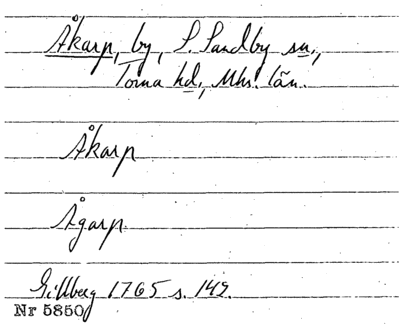 Åkarp, by, S. Sandby sn.,
Torna hd., Mhs. län.
Åkarp
Ågarp
Gillberg 1765 s. 149.
Nr 5850